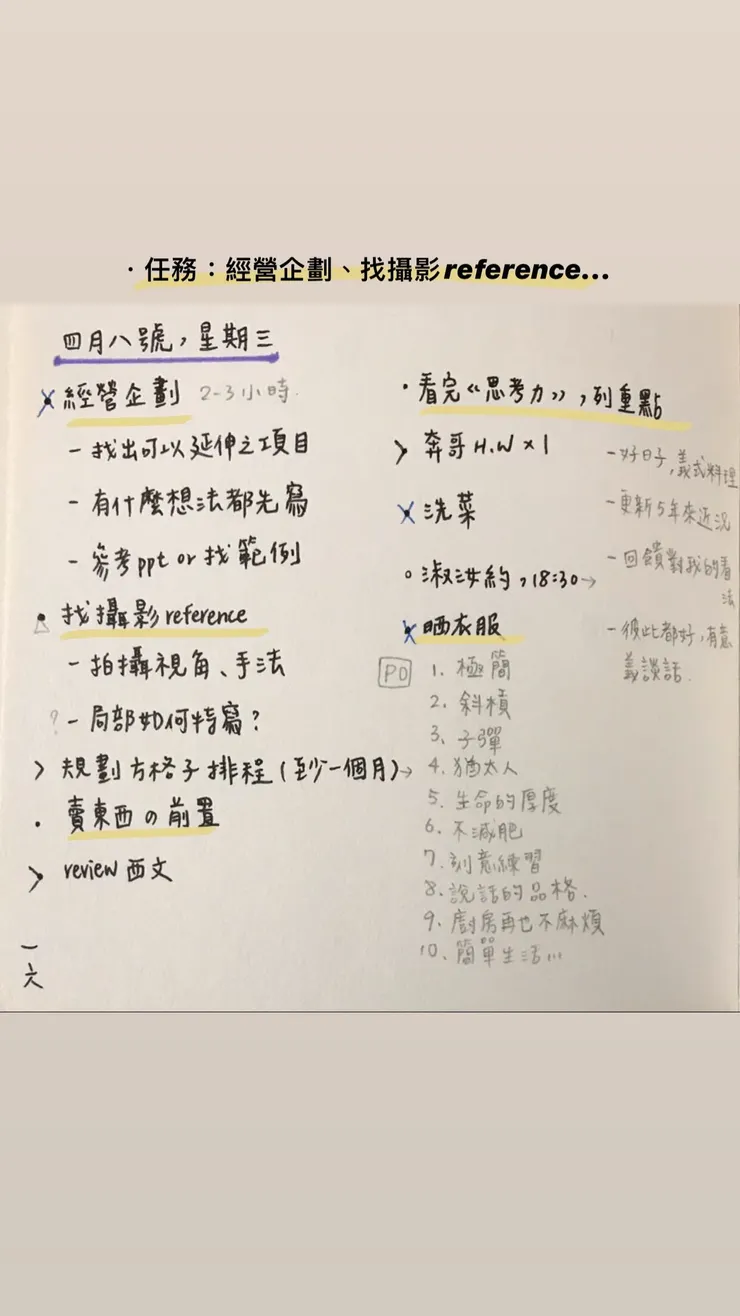 · 任務：經營企劃、找攝影reference...
四月八號，星期三
× 經營企劃 2-3小時.
- 找出可以延伸之項目
- 有什麼想法都先寫
- 參考ppt or 找範例
找攝影reference
- 拍攝視角、手法
? - 局部如何特寫？
> 規劃方格子排程(至少一個月)→
· 賣東西の前置
> review 西文
一六
· 看完《思考力》，列重點
> 奔哥 H.W × 1
× 洗菜
○ 淑汝約，18:30→
- 好日子，義式料理
- 更新5年來近況
- 回饋對我的看法
- 彼此都好，有意義談話.
× 晒衣服
PO
1. 極簡
2. 斜槓
3. 子彈
4. 猶太人
5. 生命的厚度
6. 不減肥
7. 刻意練習
8. 說話的品格.
9. 廚房再也不麻煩
10. 簡單生活...